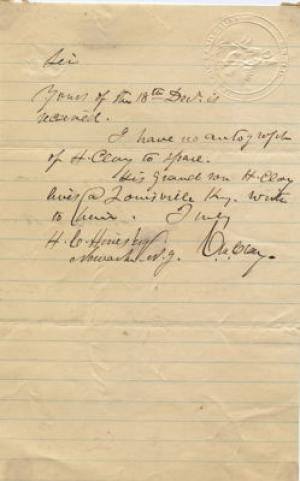 Sir
Yours of the 18th Dec. is
received.
I have no autograph
of H. Clay to spare.
His grand son H. Clay
lives @ Louisville Ky. Write
to him. Truly
H. C. 
Newark N. J. C. M. Clay.